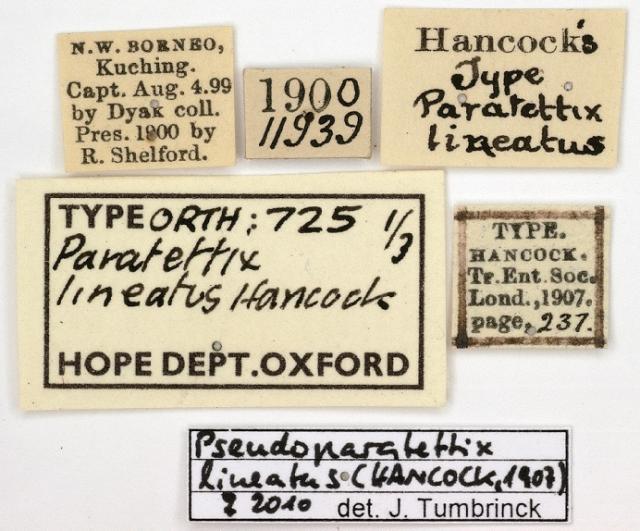 N.W. BORNEO,
Kuching.
Capt. Aug. 4.99
by Dyak coll.
Pres. 1900 by
R. Shelford.
1900
11939
Hancock's
Type
Paratettix
lineatus
TYPE ORTH: 725 1/3
Paratettix
lineatus Hancock
HOPE DEPT. OXFORD
TYPE.
HANCOCK.
Tr. Ent. Soc.
Lond., 1907.
page, 237.
Pseudoparatettix
lineatus (HANCOCK, 1907)
2010 det. J. Tumbrinck